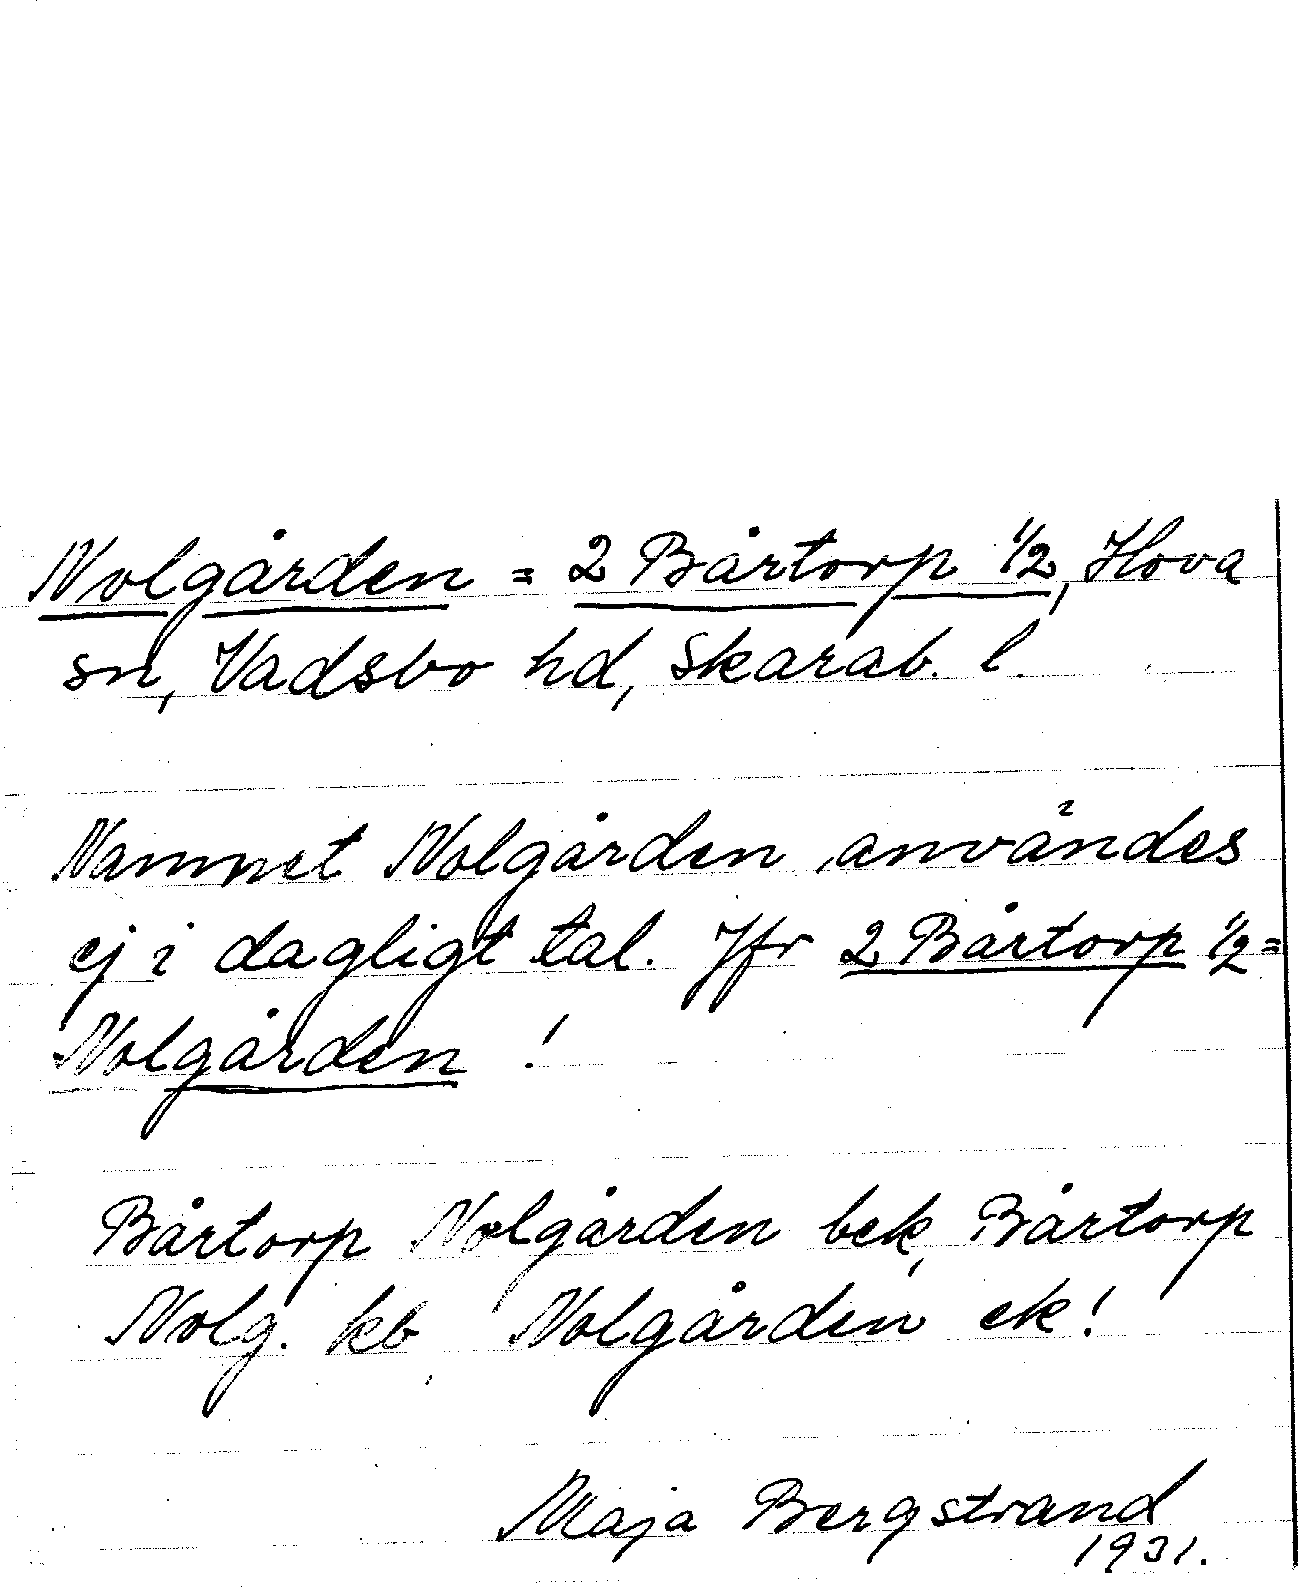 Nolgården = 2 Bårtorp 1/2, Hova
sn, Vadsbo hd, Skarab. l.
Namnet Nolgården användes
ej i dagligt tal. Jfr 2 Bårtorp 1/2 =
Nolgården !
Bårtorp Nolgården bek, Bårtorp
Nolg. kb, Nolgården ek!
Maja Bergstrand
1931.